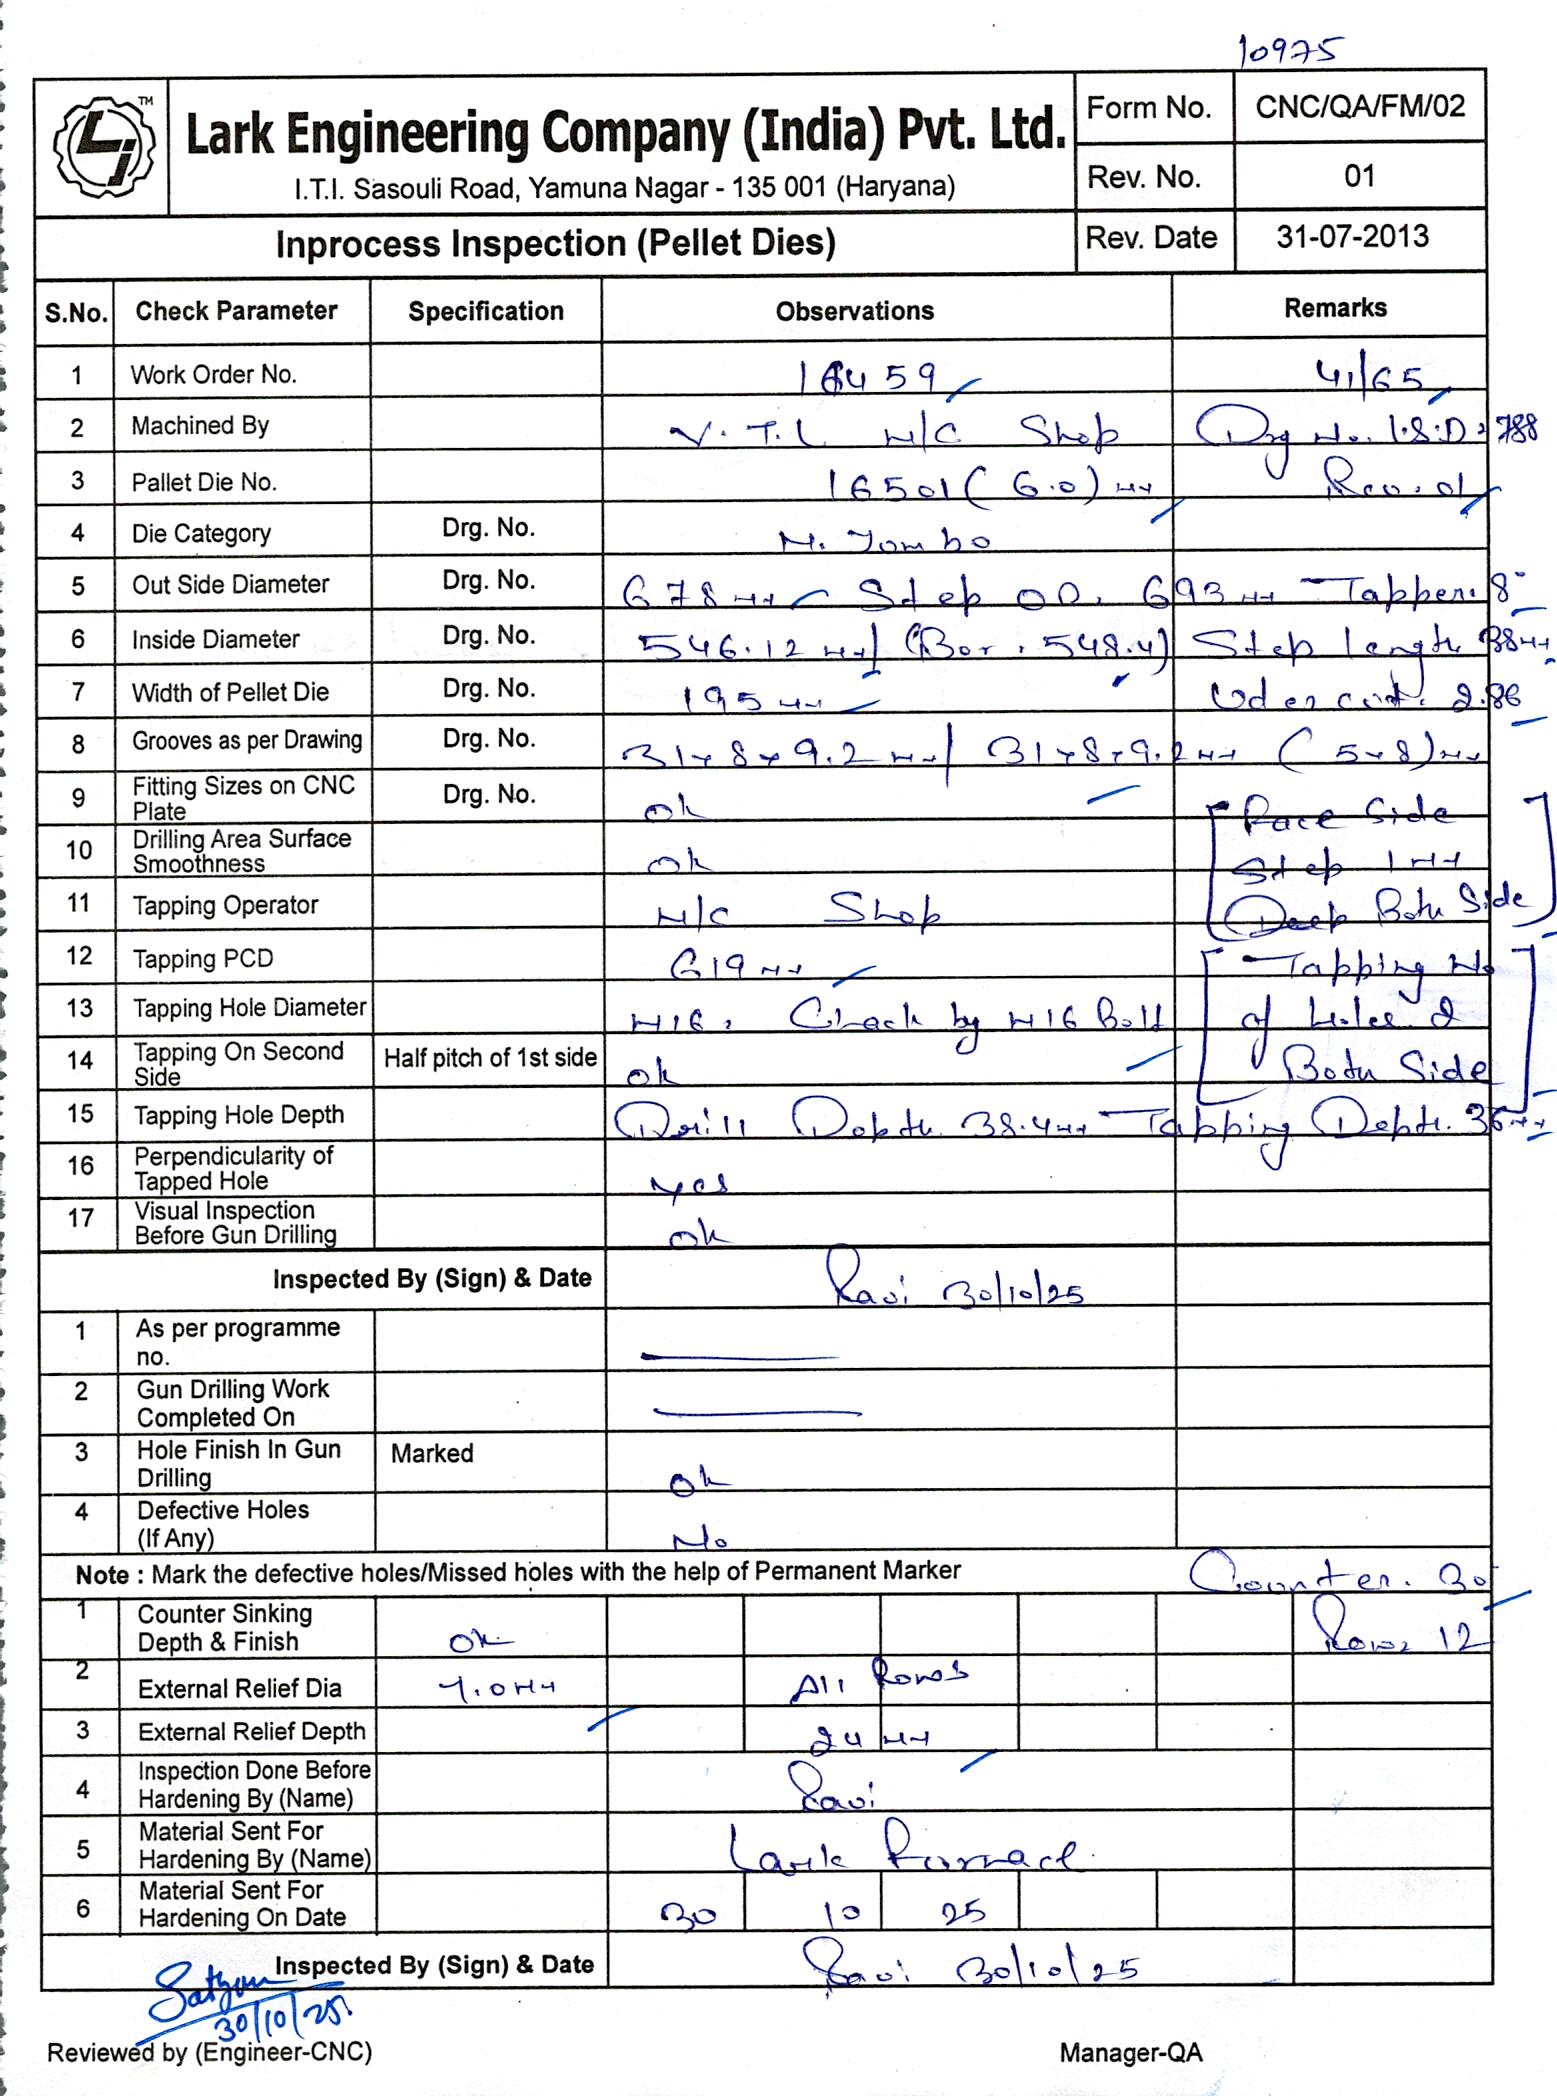 10975
TM
Lark Engineering Company (India) Pvt. Ltd.
I.T.I. Sasouli Road, Yamuna Nagar - 135 001 (Haryana)
Form No. CNC/QA/FM/02
Rev. No. 01
Inprocess Inspection (Pellet Dies) Rev. Date 31-07-2013
S.No. Check Parameter Specification Observations Remarks
1 Work Order No. 16459 41/65
2 Machined By V.T.L M/C Shop Drg No. 788
3 Pallet Die No. 16501 (6.0) mm Rev. 01
4 Die Category Drg. No. M. Jombo
5 Out Side Diameter Drg. No. 678 mm Step OD. 693 mm Tapper. 8°
6 Inside Diameter Drg. No. 546.12 mm (Bor. 548.4) Step length 38 mm
7 Width of Pellet Die Drg. No. 195 mm Uder cut. 2.86
8 Grooves as per Drawing Drg. No. 31x8x9.2 mm/ 31x8x9.2 mm (5x8) mm
9 Fitting Sizes on CNC Plate Drg. No. ok [Face Side
10 Drilling Area Surface Smoothness ok Step 1 mm
11 Tapping Operator M/C Shop Deep Both Side]
12 Tapping PCD 619 mm [Tapping No
13 Tapping Hole Diameter M16. Check by M16 Bolt of holes. 2
14 Tapping On Second Side Half pitch of 1st side ok Both Side]
15 Tapping Hole Depth Drill Depth. 38.4 mm Tapping Depth. 36 mm
16 Perpendicularity of Tapped Hole yes
17 Visual Inspection Before Gun Drilling ok
Inspected By (Sign) & Date Ravi 30/10/25
1 As per programme no.
2 Gun Drilling Work Completed On
3 Hole Finish In Gun Drilling Marked ok
4 Defective Holes (If Any) No
Note : Mark the defective holes/Missed holes with the help of Permanent Marker Counter. 30
1 Counter Sinking Depth & Finish ok Rows 12
2 External Relief Dia 7.0 mm All Rows
3 External Relief Depth 24 mm
4 Inspection Done Before Hardening By (Name) Ravi
5 Material Sent For Hardening By (Name) Lark Furnace
6 Material Sent For Hardening On Date 30 10 25
Inspected By (Sign) & Date Ravi 30/10/25
Satyam
30/10/25
Reviewed by (Engineer-CNC) Manager-QA